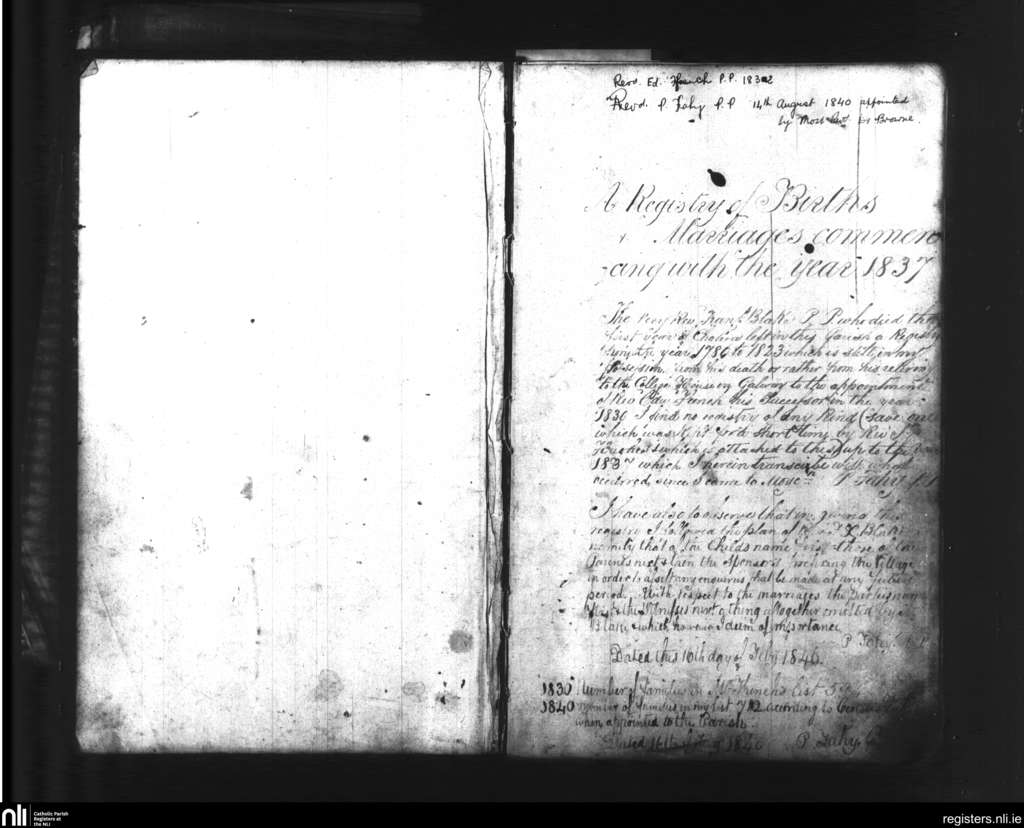 Revd. Ed. Ffrench P.P. 1832
Revd. P. Fahy P.P 14th August 1840 appointed
by Most Revd Dr Browne.
A Registry of Births
Marriages commen
-cing with the year 1837
The Very Revd. Blake P. P who died the
first year of Cholera left in this Parish a Registry
from the year 1786 to 1823 which is still in my
possession. From his death or rather from his retiring
to the College House in Galway to the appointment
of Revd his Successor in the year
1830 I find no registry of any kind (save one
which was kept for a short time by Revd
which is attached to this) up to the
1837 which I herein transcribe with what
occurred since I came to P Fahy P.P
I have also to observe that in giving this
registry I followed the plan of Blake
namely that of the Childs name first then of the
Parents next & then the Sponsors the Village
in order to assist any enquiries that be made at any future
period. With respect to the marriages the Parties names
first & the Witnesses next a thing altogether omitted by
Blake & which I deem of importance
P Fahy P.P
Dated this 10th day of Feby 1846.
1830 Number of families in Mr Ffrench's list
1840 Number of Families in my list 712 according to Census
when appointed to the Parish
Dated 16th of 1840 P Fahy
nli
Catholic Parish
Registers at
the NLI
registers.nli.ie